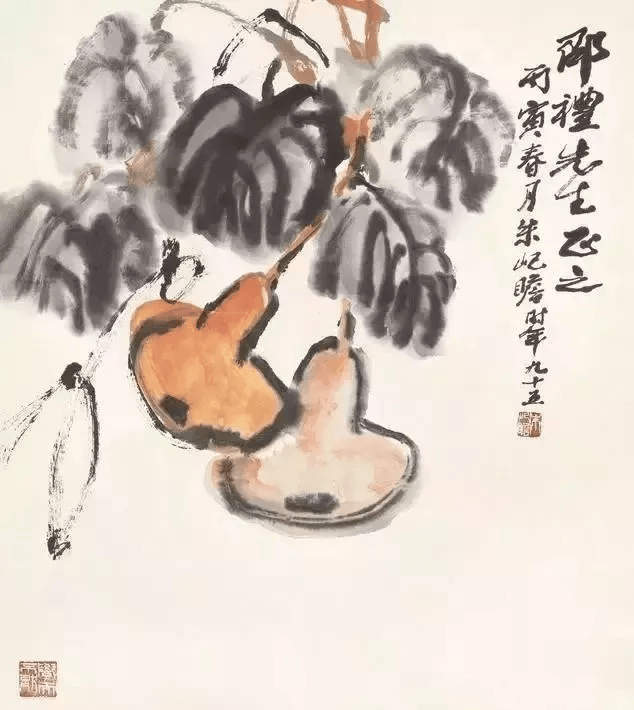 邵禮先生正之
丙寅春月朱屺瞻时年九十五